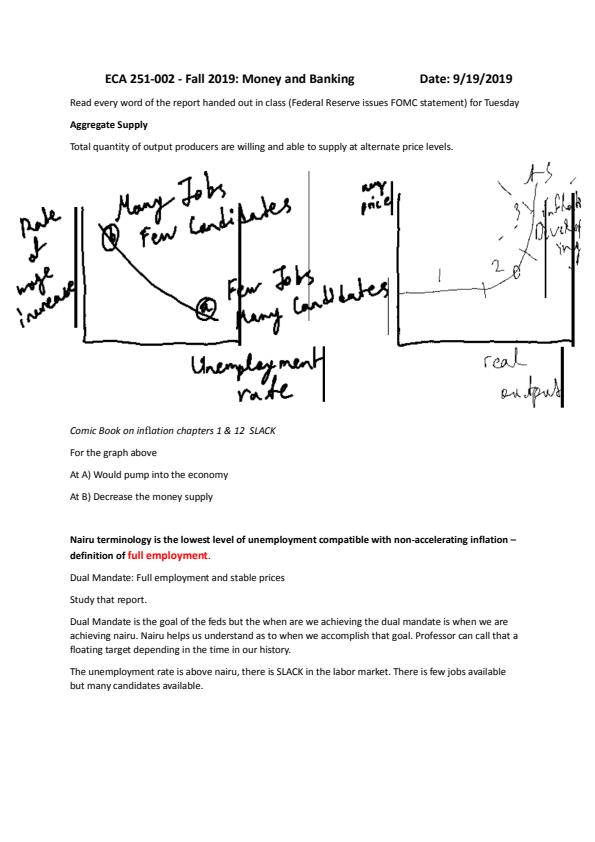 ECA 251-002 - Fall 2019: Money and Banking Date: 9/19/2019
Read every word of the report handed out in class (Federal Reserve issues FOMC statement) for Tuesday
Aggregate Supply
Total quantity of output producers are willing and able to supply at alternate price levels.
Rate
of
wage
increase
Many Jobs
Few Candidates
b
Few Jobs
Many Candidates
a
Unemployment
rate
price
AS
1
2
3
real
output
Comic Book on inflation chapters 1 & 12 SLACK
For the graph above
At A) Would pump into the economy
At B) Decrease the money supply
Nairu terminology is the lowest level of unemployment compatible with non-accelerating inflation –
definition of full employment.
Dual Mandate: Full employment and stable prices
Study that report.
Dual Mandate is the goal of the feds but the when are we achieving the dual mandate is when we are
achieving nairu. Nairu helps us understand as to when we accomplish that goal. Professor can call that a
floating target depending in the time in our history.
The unemployment rate is above nairu, there is SLACK in the labor market. There is few jobs available
but many candidates available.